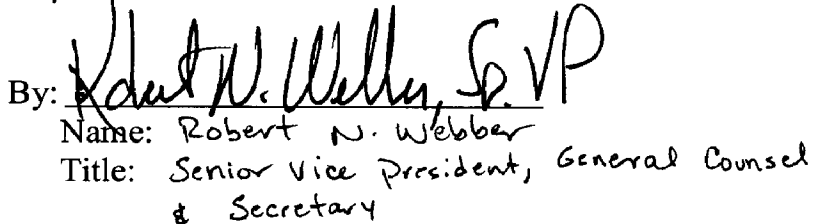 By: Robert N. Webber, Sr. VP
Name: Robert N. Webber
Title: Senior Vice President, General Counsel
& Secretary